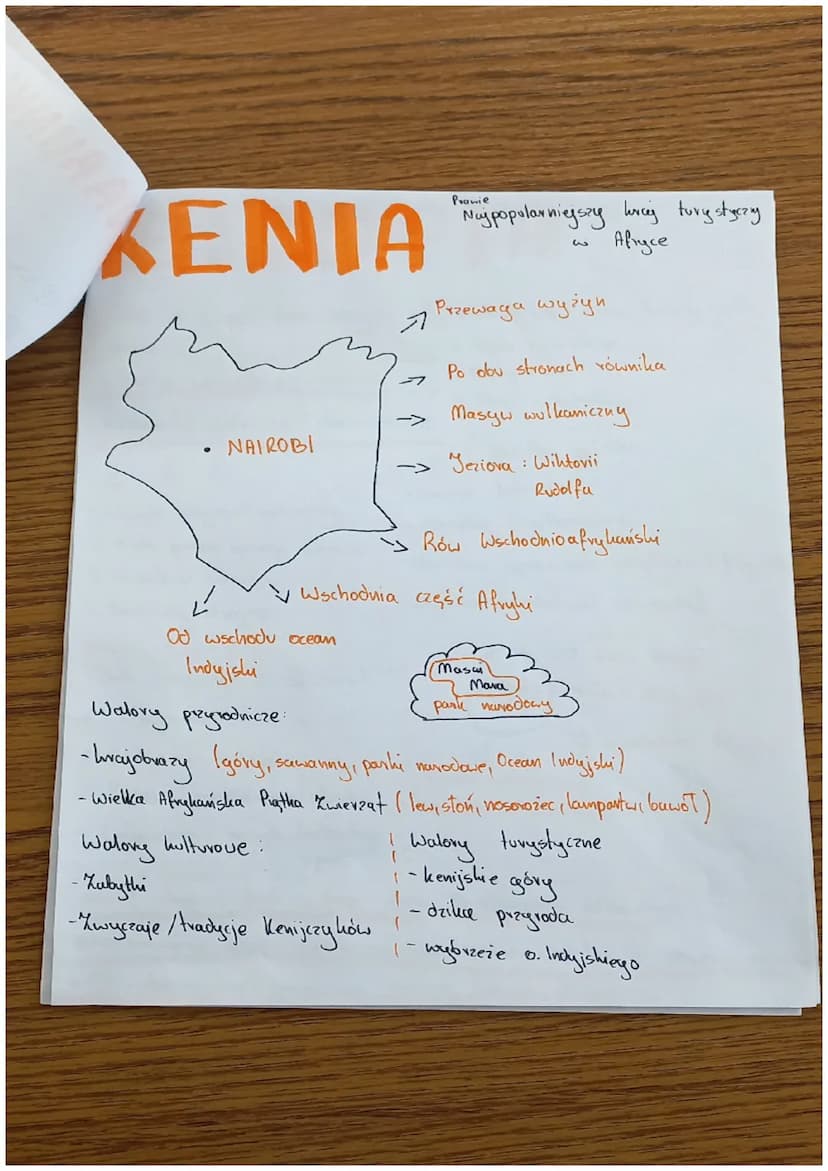 KENIA
Prawie
Najpopularniejszy kraj turystyczy
w Afryce
Przewaga wyżyn
Po obu stronach równika
Masyw wulkaniczny
NAIROBI
Jeziora : Wiktorii
Rudolfa
Rów Wschodnioafrykański
Wschodnia część Afryki
Od wschodu ocean
Indyjski
Masai
Mara
park narodowy
Walory przyrodnicze:
- krajobrazy (góry, sawanny, parki narodowe, Ocean Indyjski)
- Wielka Afrykańska Piątka Zwierząt (lew, słoń, nosorożec, lampart, bawół)
Walory kulturowe :
- Zabytki
- Zwyczaje / tradycje Kenijczyków
Walory turystyczne
- kenijskie góry
- dzika przyroda
- wybrzeże o. Indyjskiego